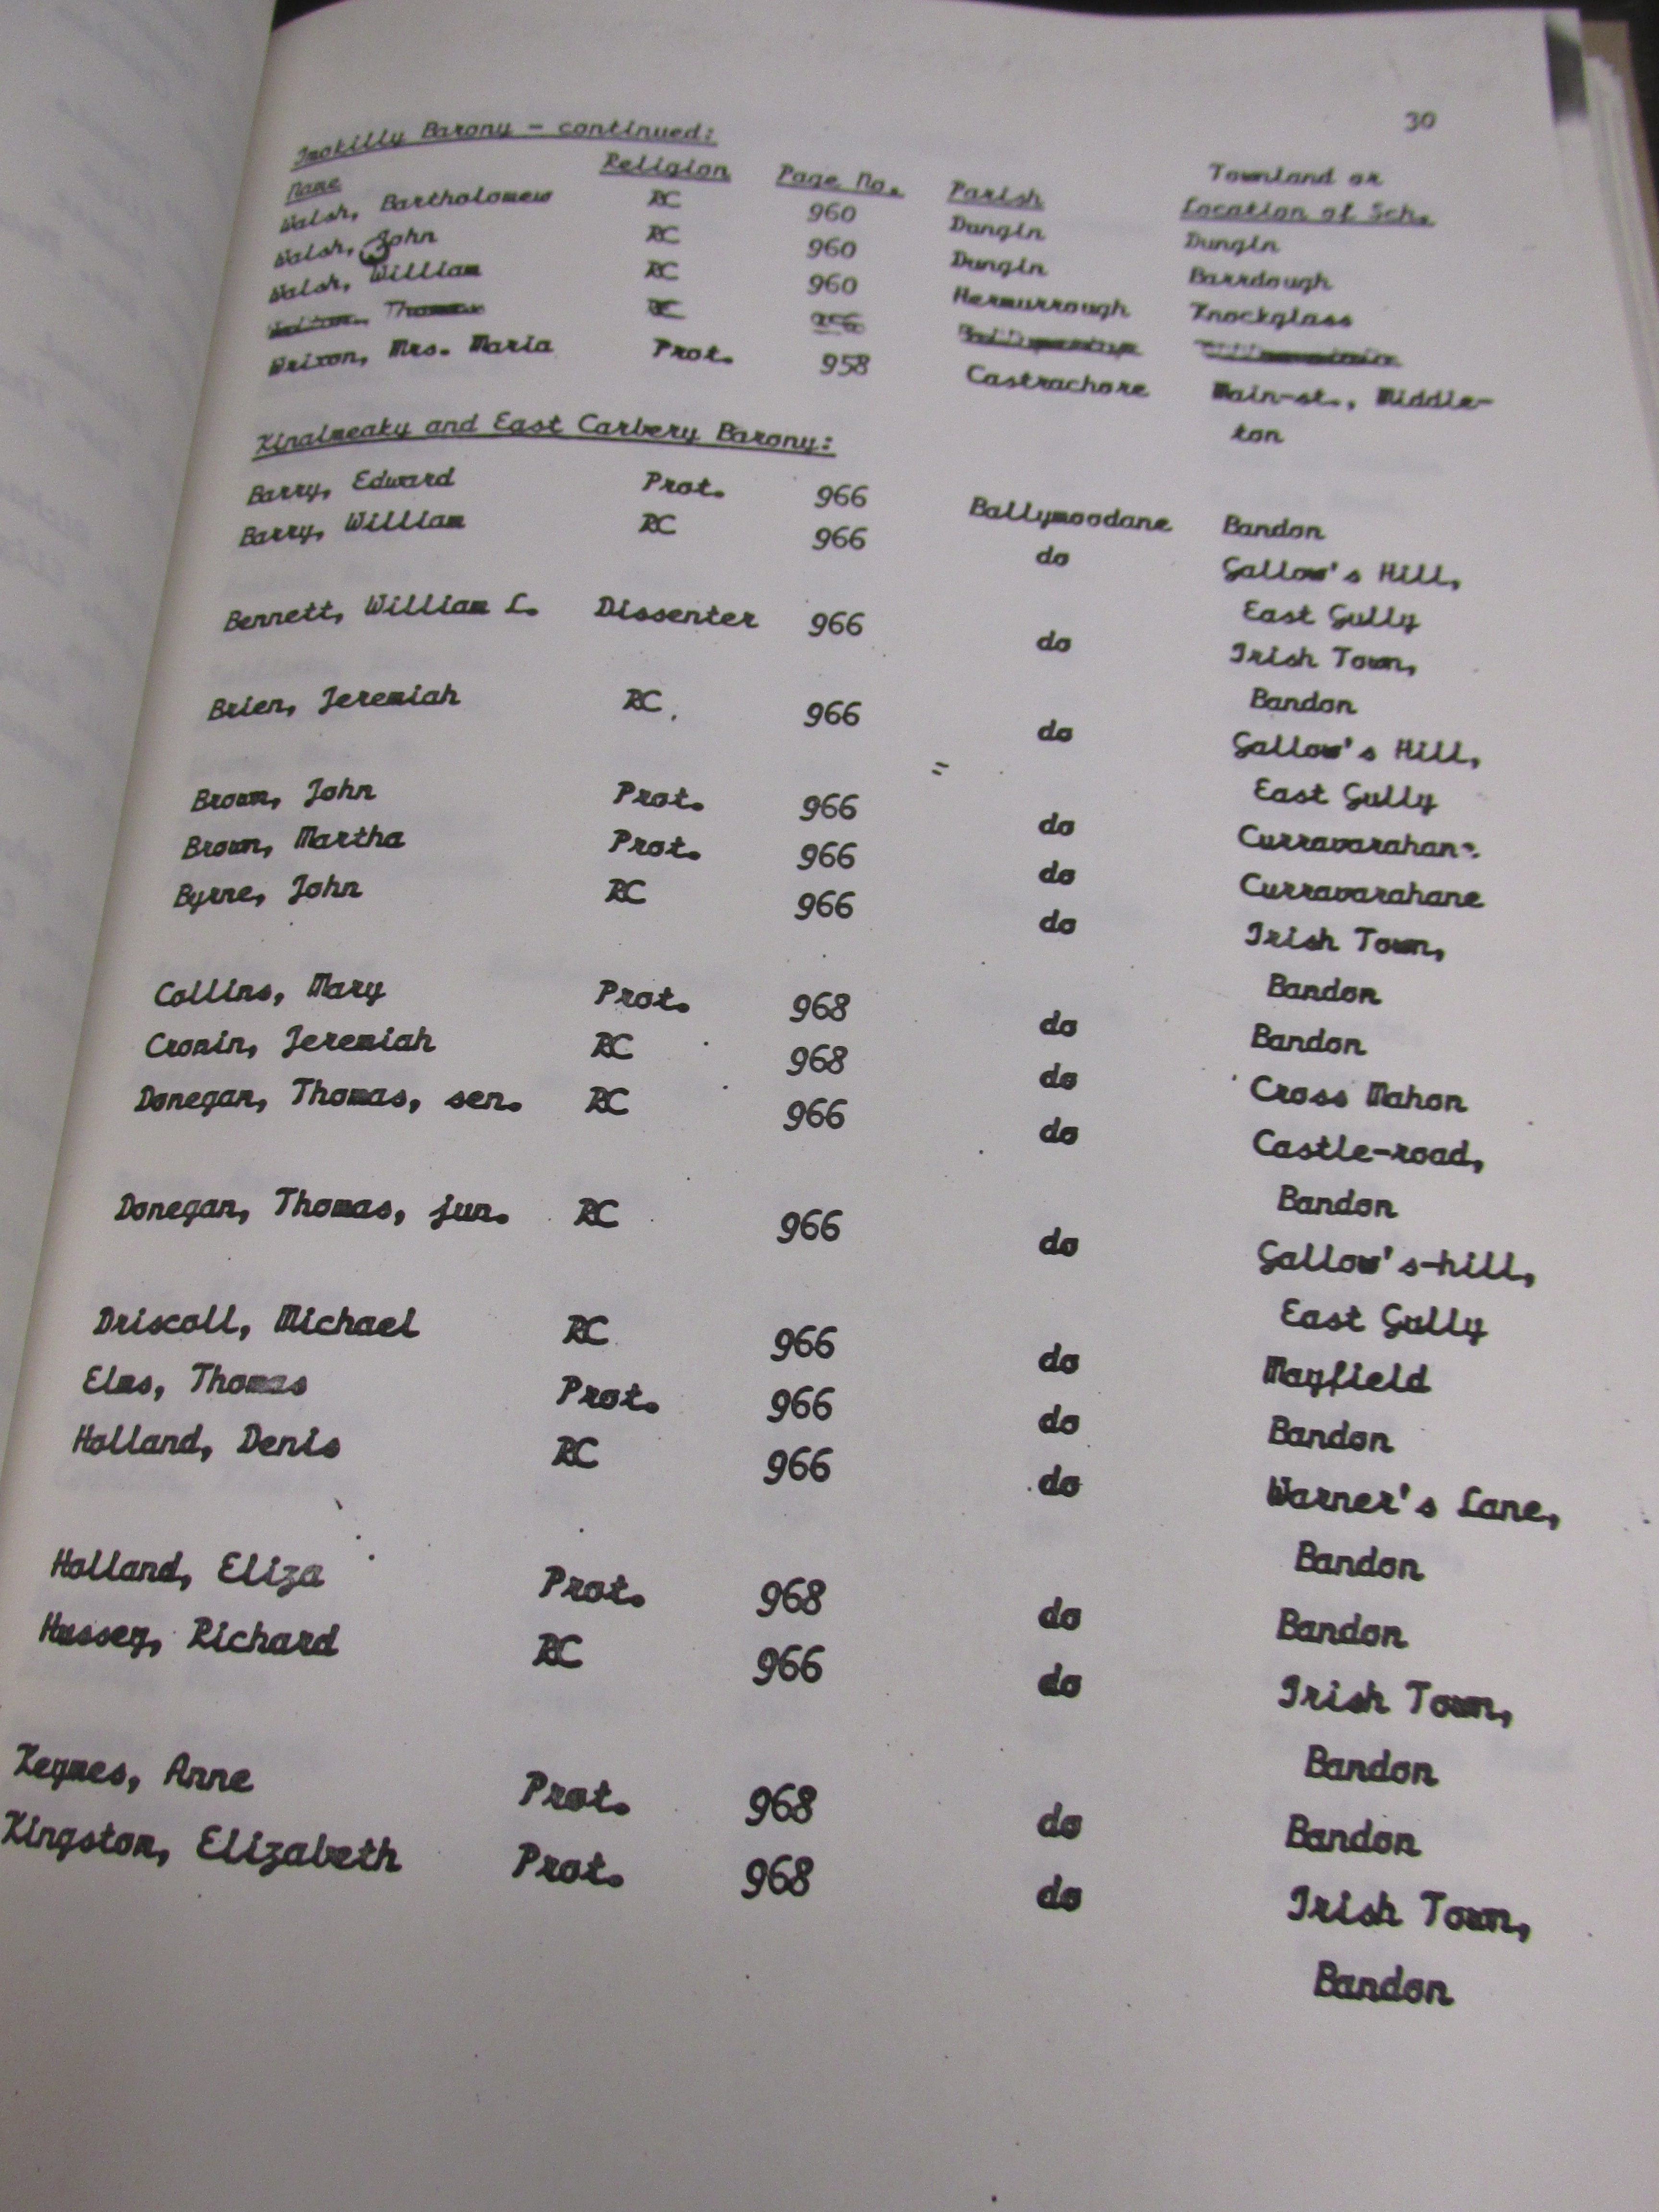 30
Imokilly Barony - continued:
Townland or
Name Religion Page No. Parish Location of Sch.
Walsh, Bartholomew RC 960 Dungin Dungin
Walsh, John RC 960 Dungin Barrdough
Walsh, William RC 960 Hermurrough Knockglass
Thomas
Wrixon, Mrs. Maria Prot. 958 Castrachore Main-st., Middle-
ton
Kinalmeaky and East Carbery Barony:
Barry, Edward Prot. 966 Ballymoodane Bandon
Barry, William RC 966 do Gallow's Hill,
East Gully
Bennett, William L. Dissenter 966 do Irish Town,
Bandon
Brien, Jeremiah RC 966 do Gallow's Hill,
East Gully
Brown, John Prot. 966 do Curravarahane
Brown, Martha Prot. 966 do Curravarahane
Byrne, John RC 966 do Irish Town,
Bandon
Collins, Mary Prot. 968 do Bandon
Cronin, Jeremiah RC 968 do Cross Mahon
Donegan, Thomas, sen. RC 966 do Castle-road,
Bandon
Donegan, Thomas, jun. RC 966 do Gallow's-hill,
East Gully
Driscoll, Michael RC 966 do Mayfield
Elms, Thomas Prot. 966 do Bandon
Holland, Denis RC 966 do Warner's Lane,
Bandon
Holland, Eliza Prot. 968 do Bandon
Hussey, Richard RC 966 do Irish Town,
Bandon
Keymes, Anne Prot. 968 do Bandon
Kingston, Elizabeth Prot. 968 do Irish Town,
Bandon